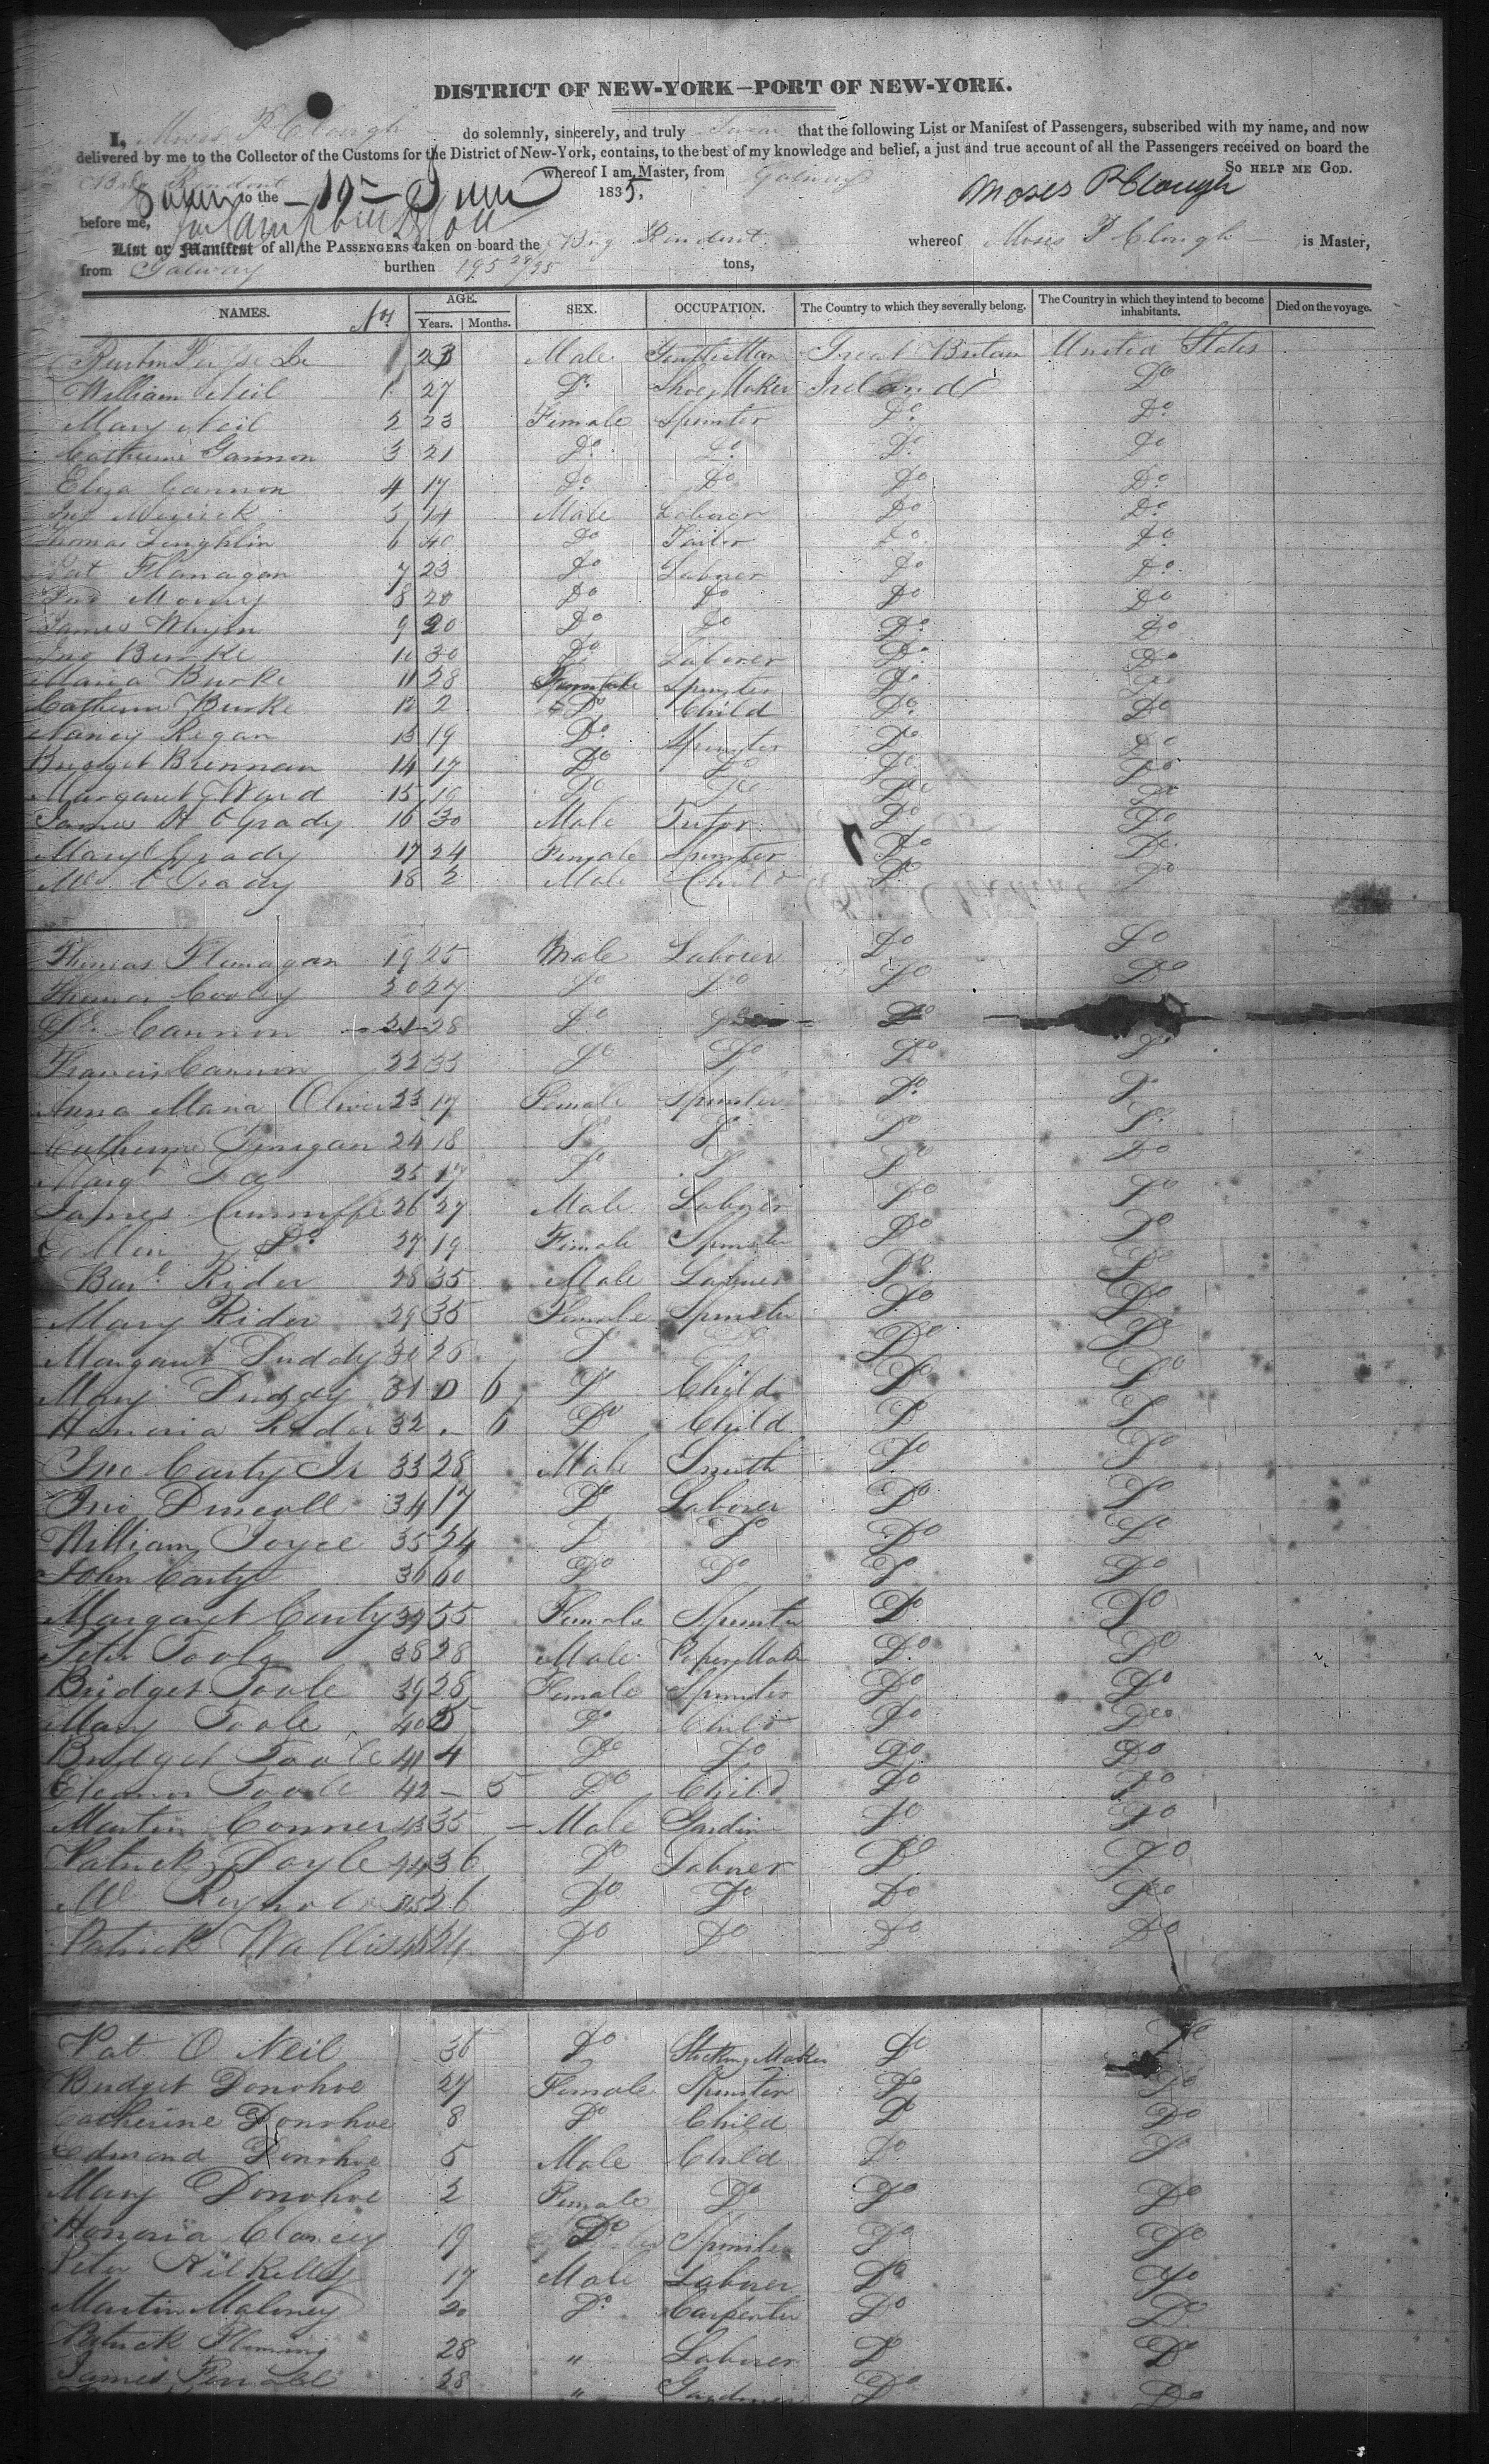 DISTRICT OF NEW-YORK—PORT OF NEW-YORK.
I, Moses P Clough do solemnly, sincerely, and truly Swear that the following List or Manifest of Passengers, subscribed with my name, and now
delivered by me to the Collector of the Customs for the District of New-York, contains, to the best of my knowledge and belief, a just and true account of all the Passengers received on board the
Brig whereof I am Master, from Galway SO HELP ME GOD.
Sworn to the 19 June 1835, Moses P Clough
before me,
List or Manifest of all the PASSENGERS taken on board the Brig whereof Moses P Clough is Master,
from Galway burthen 195 tons,
NAMES. AGE. SEX. OCCUPATION. The Country to which they severally belong. The Country in which they intend to become inhabitants. Died on the voyage.
Years. Months.
23 Male Great Britain United States
William Neil 1 27 Do Shoe Maker Ireland Do
Mary Neil 2 23 Female Spinster Do Do
Catherine Gannon 3 21 Do Do Do Do
Eliza Cannon 4 17 Do Do Do Do
5 14 Male Laborer Do Do
Thomas Loughlin 6 40 Do Tailor Do Do
Pat Flanagan 7 23 Do Laborer Do Do
8 20 Do Do Do Do
James 9 20 Do Do Do Do
Jno Burke 10 30 Do Laborer Do Do
Maria Burke 11 28 Female Spinster Do Do
Catherine Burke 12 2 Do Child Do Do
Nancy Regan 13 19 Do Spinster Do Do
Bridget Brennan 14 17 Do Do Do Do
Margaret Ward 15 19 Do Do Do Do
James H OGrady 16 30 Male Tutor Do Do
Mary OGrady 17 24 Female Spinster Do Do
Ml OGrady 18 2 Male Child Do Do
Thomas Flanagan 19 25 Male Laborer Do Do
Thomas Cooley 20 27 Do Do Do Do
Cannon 21 28 Do Do Do
Francis Cannon 22 33 Do Do Do Do
Anna Maria Oliver 23 17 Female Spinster Do Do
Catherine Finigan 24 18 Do Do Do Do
Margt 25 17 Do Do Do Do
James Cunniffe 26 27 Male Laborer Do Do
Ellen Do 27 19 Female Spinster Do Do
Rider 28 35 Male Laborer Do Do
Mary Rider 29 35 Female Spinster Do Do
Margaret Duddy 30 26 Do Do Do Do
Mary Duddy 31 0 6 Do Child Do Do
Honoria Rider 32 6 Do Child Do Do
Jno Carty Jr 33 28 Male Smith Do Do
Jno Driscoll 34 17 Do Laborer Do Do
William Joyce 35 24 Do Do Do Do
John Carty 36 60 Do Do Do Do
Margaret Carty 37 55 Female Spinster Do Do
Peter Toole 38 28 Male Do Do
Bridget Toole 39 28 Female Spinster Do Do
Mary Toole 40 5 Do Child Do Do
Bridget Toole 41 4 Do Do Do Do
Eleanor Toole 42 – 5 Do Child Do Do
Martin Conner 43 35 – Male Do Do
Patrick Doyle 44 36 Do Laborer Do Do
Ml 45 26 Do Do Do Do
Patrick Wallis 46 24 Do Do Do Do
Pat O Neil 36 Do Stocking Maker Do Do
Bridget Donohoe 27 Female Spinster Do Do
Catherine Donohoe 8 Do Child Do Do
Edmond Donohoe 5 Male Child Do Do
Mary Donohoe 2 Female Do Do Do
Honoria Clancey 19 Do Spinster Do Do
Peter Kilkelly 17 Male Laborer Do Do
Martin Maloney 20 Do Carpenter Do Do
Patrick Fleming 28 " Laborer Do Do
James 28 " Do Do